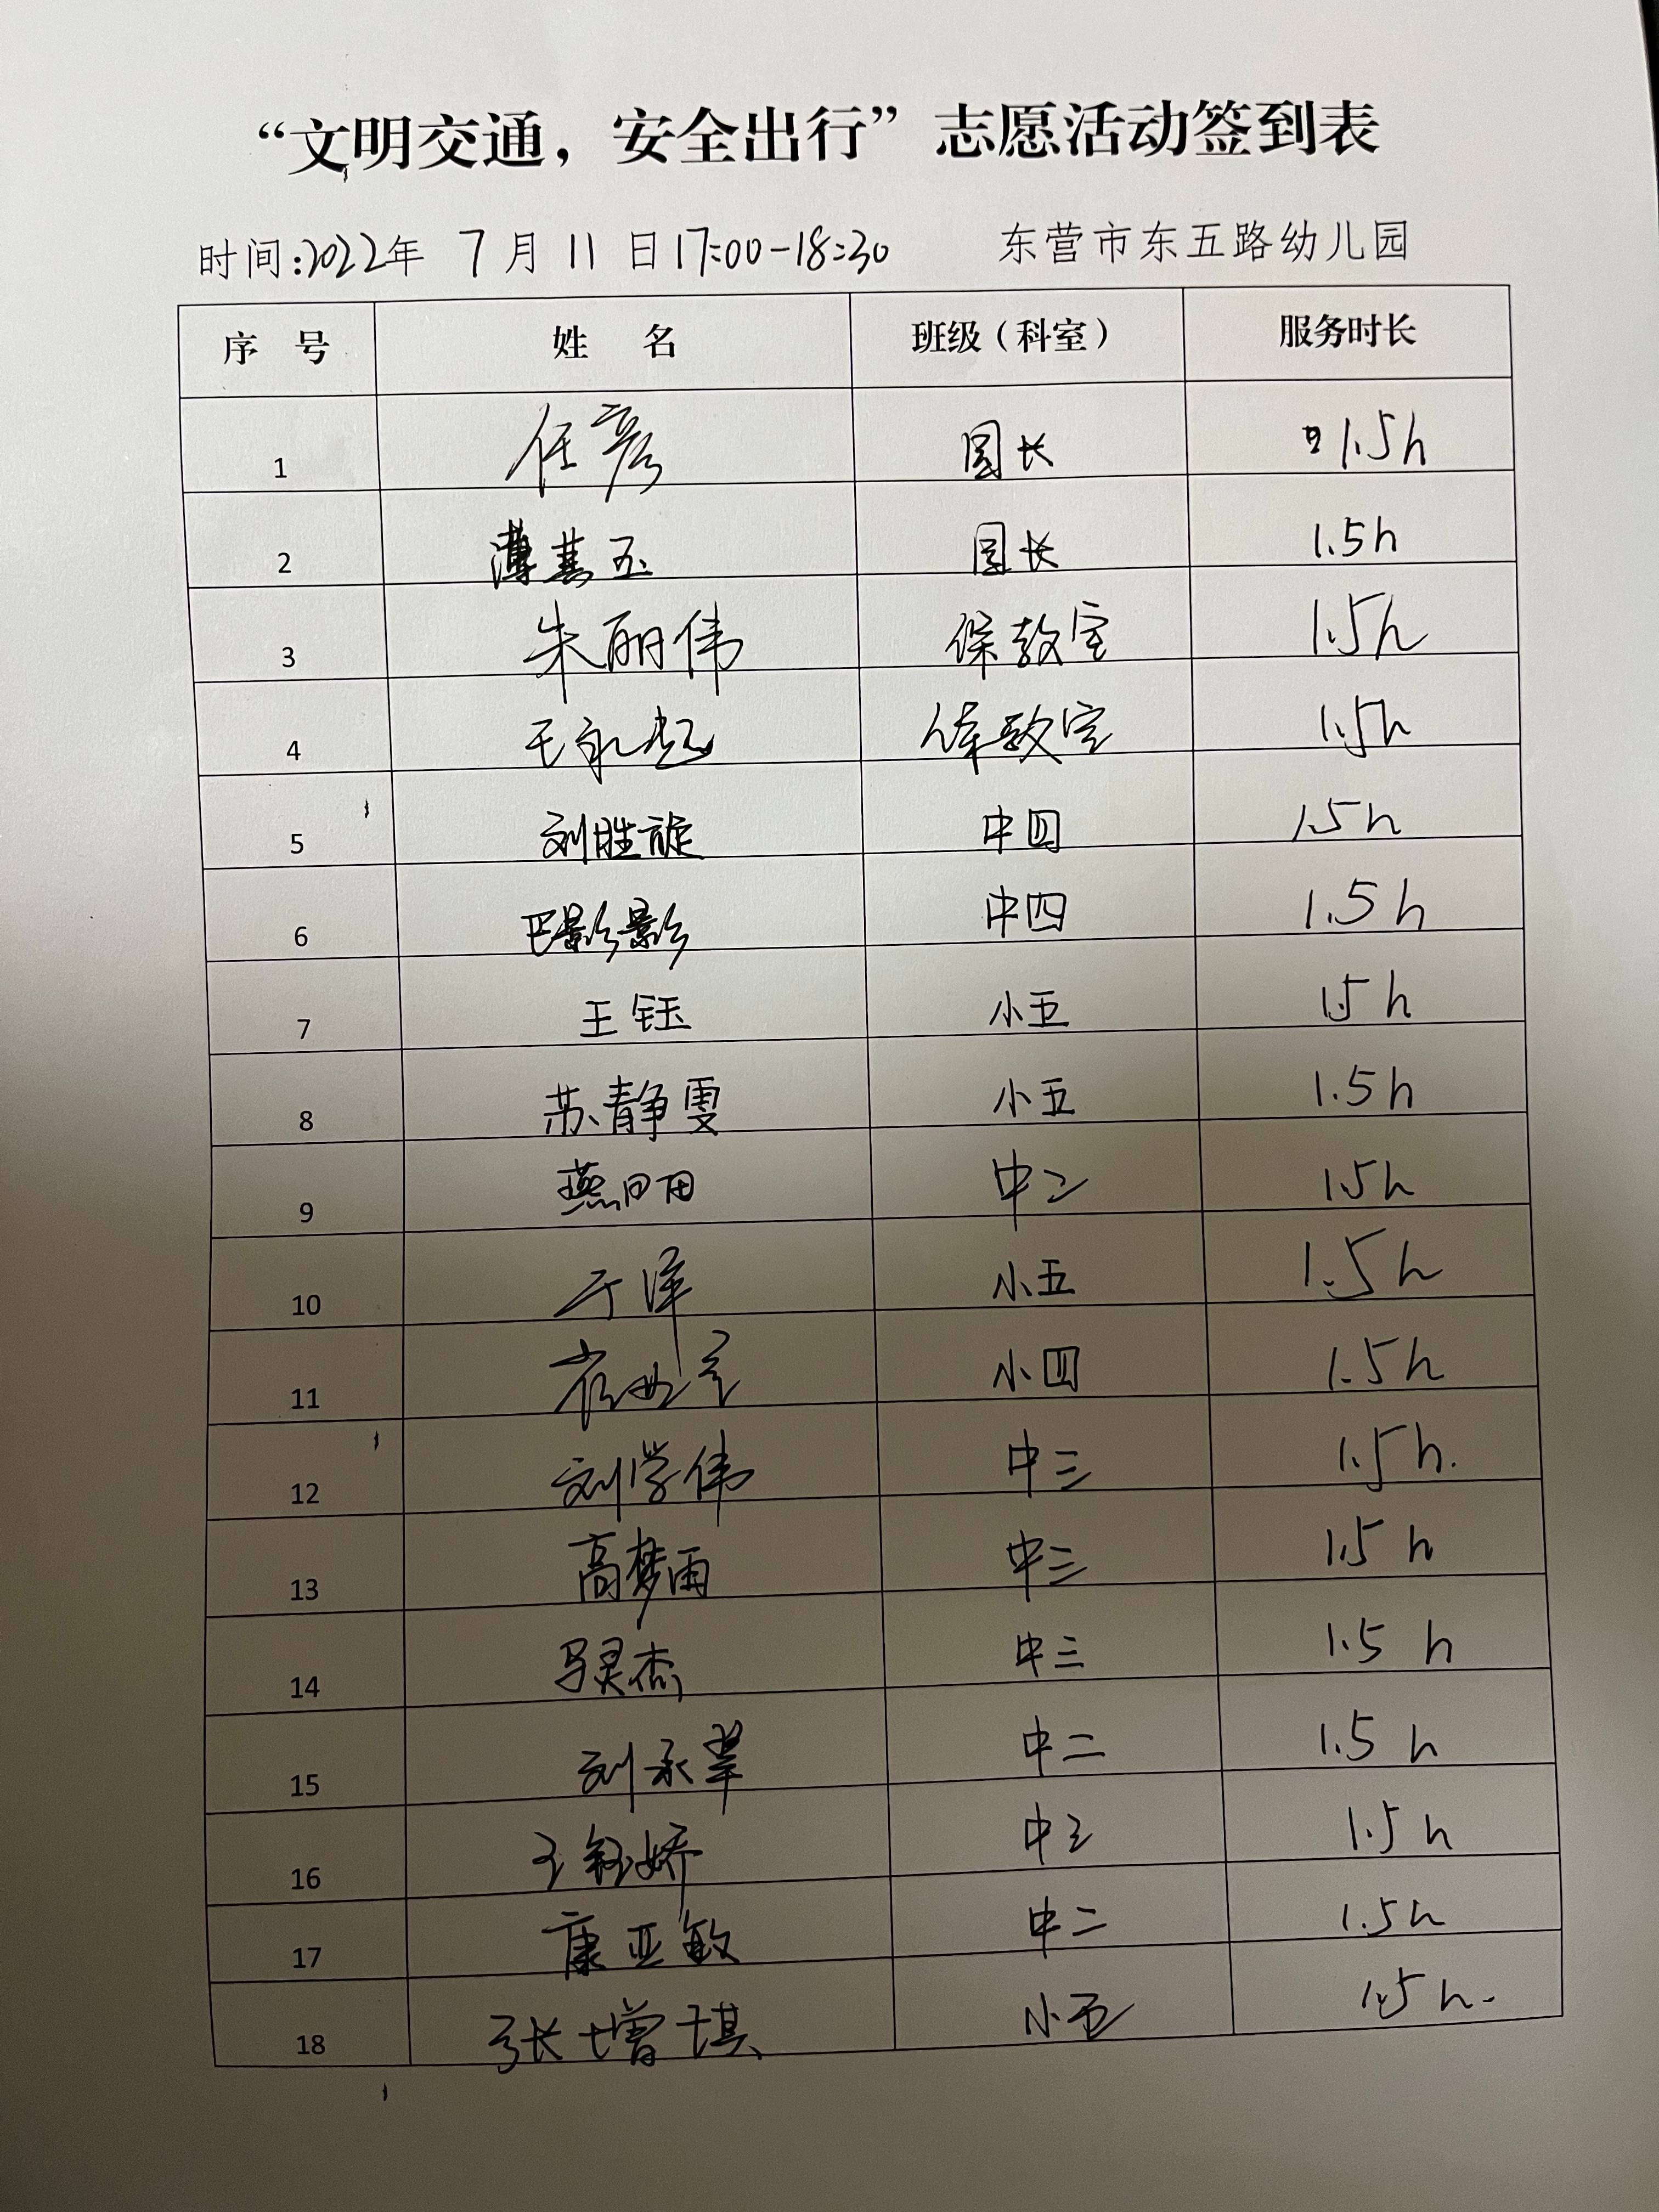 “文明交通，安全出行”志愿活动签到表
时间:2022年 7 月 11 日 17:00-18:30 东营市东五路幼儿园
序 号 姓 名 班级（科室） 服务时长
1 任彦 园长 1.5h
2 薄其玉 园长 1.5h
3 朱丽伟 保教室 1.5h
4 保教室 1.5h
5 刘胜旋 中四 1.5h
6 巴影影 中四 1.5h
7 王钰 小五 1.5h
8 苏静雯 小五 1.5h
9 中二 1.5h
10 于洋 小五 1.5h
11 小四 1.5h
12 刘学伟 中三 1.5h.
13 高梦雨 中三 1.5h
14 马灵杰 中三 1.5h
15 中二 1.5h
16 王钰娇 1.5h
17 康亚敏 中二 1.5h
18 张增琪 小五 1.5h.